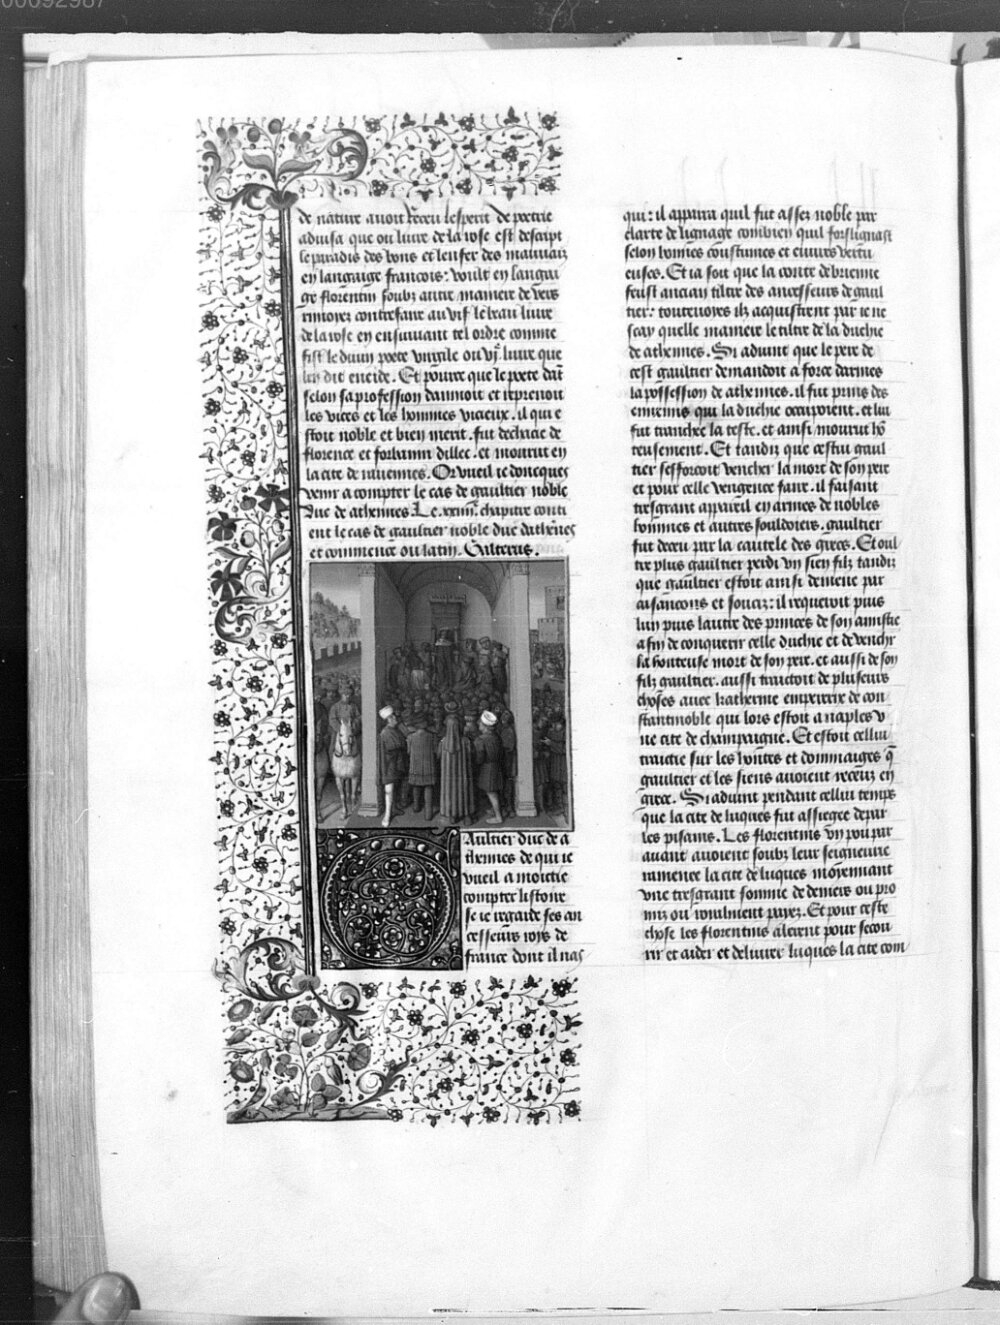 00092987
de nature auoit receu lesperit de poetrie
aduisa que ou liure de la rose est descript
le paradis des bons et lenfer des mauuaiz
en langaige francois: voult en langai
ge florentin soubz autre maniere de vers
rimoiez contrefaire au vif le beau liure
de la rose en ensuiuant tel ordre comme
fist le diuin poete virgile ou vj liure que
len dit eneide. Et pource que le poete dāt
selon sa profession dampnoit et reprenoit
les vices et les hommes vicieux. il qui e
stoit noble et bien merit. fut dechacie de
florence et forbanni dillec. et mourut en
la cite de rauennes. Or vueil ie doncques
venir a compter le cas de gaultier noble
duc de athennes Le xxiiij chapitre conti
ent le cas de gaultier noble duc dathenes
et commence ou latin. Galterus.
Gaultier duc de a
thennes de qui ie
vueil a moictie
compter listoire
se ie regarde ses an
cesseurs roys de
france dont il nas
qui: il apparra quil fut assez noble par
clarte de lignage combien quil forslignast
selon bonnes coustumes et euures vertu
euses. Et ia soit que la conte de brienne
feust ancian tiltre des ancesseurs de gaul
tier: toutesuoies ilz acquistrent par ie ne
scay quelle maniere le tiltre de la duchie
de athennes. Si aduint que le pere de
cest gaultier demandoit a force darmes
la possession de athennes. il fut prins des
ennemis qui la duchie occupoient. et lui
fut tranchee la teste. et ainsi mourut hō
teusement. Et tandiz que cestui gaul
tier sefforcoit vencher la mort de son pere
et pour celle vengence faire. il faisant
tresgrant appareil en armes de nobles
hommes et autres souldoiers. gaultier
fut deceu par la cautele des grecs. Et oul
tre plus gaultier perdi vn sien filz tandiz
que gaultier estoit ainsi demene par
aisancons et souciz: il requeroit puis
lun puis lautre des princes de son amistie
afin de conquerir celle duchie et de vencher
la honteuse mort de son pere. et aussi de son
filz gaultier. aussi traictoit de pluseurs
choses auec katherine empereriz de con
stantinoble qui lors estoit a naples v
ne cite de champaigne. Et estoit cellui
traictie sur les hontes et dommaiges q̄
gaultier et les siens auoient receuz en
grece. Si aduint pendant cellui temps
que la cite de luques fut assiegee depar
les pisains. Les florentins vn pou par
auant auoient soubz leur seigneurie
ramenee la cite de luques moyennant
vne tresgrant somme de deniers ou pro
mis ou royalment payez. Et pour ceste
chose les florentins alerent pour secou
rir et aider et deliurer luques la cite com